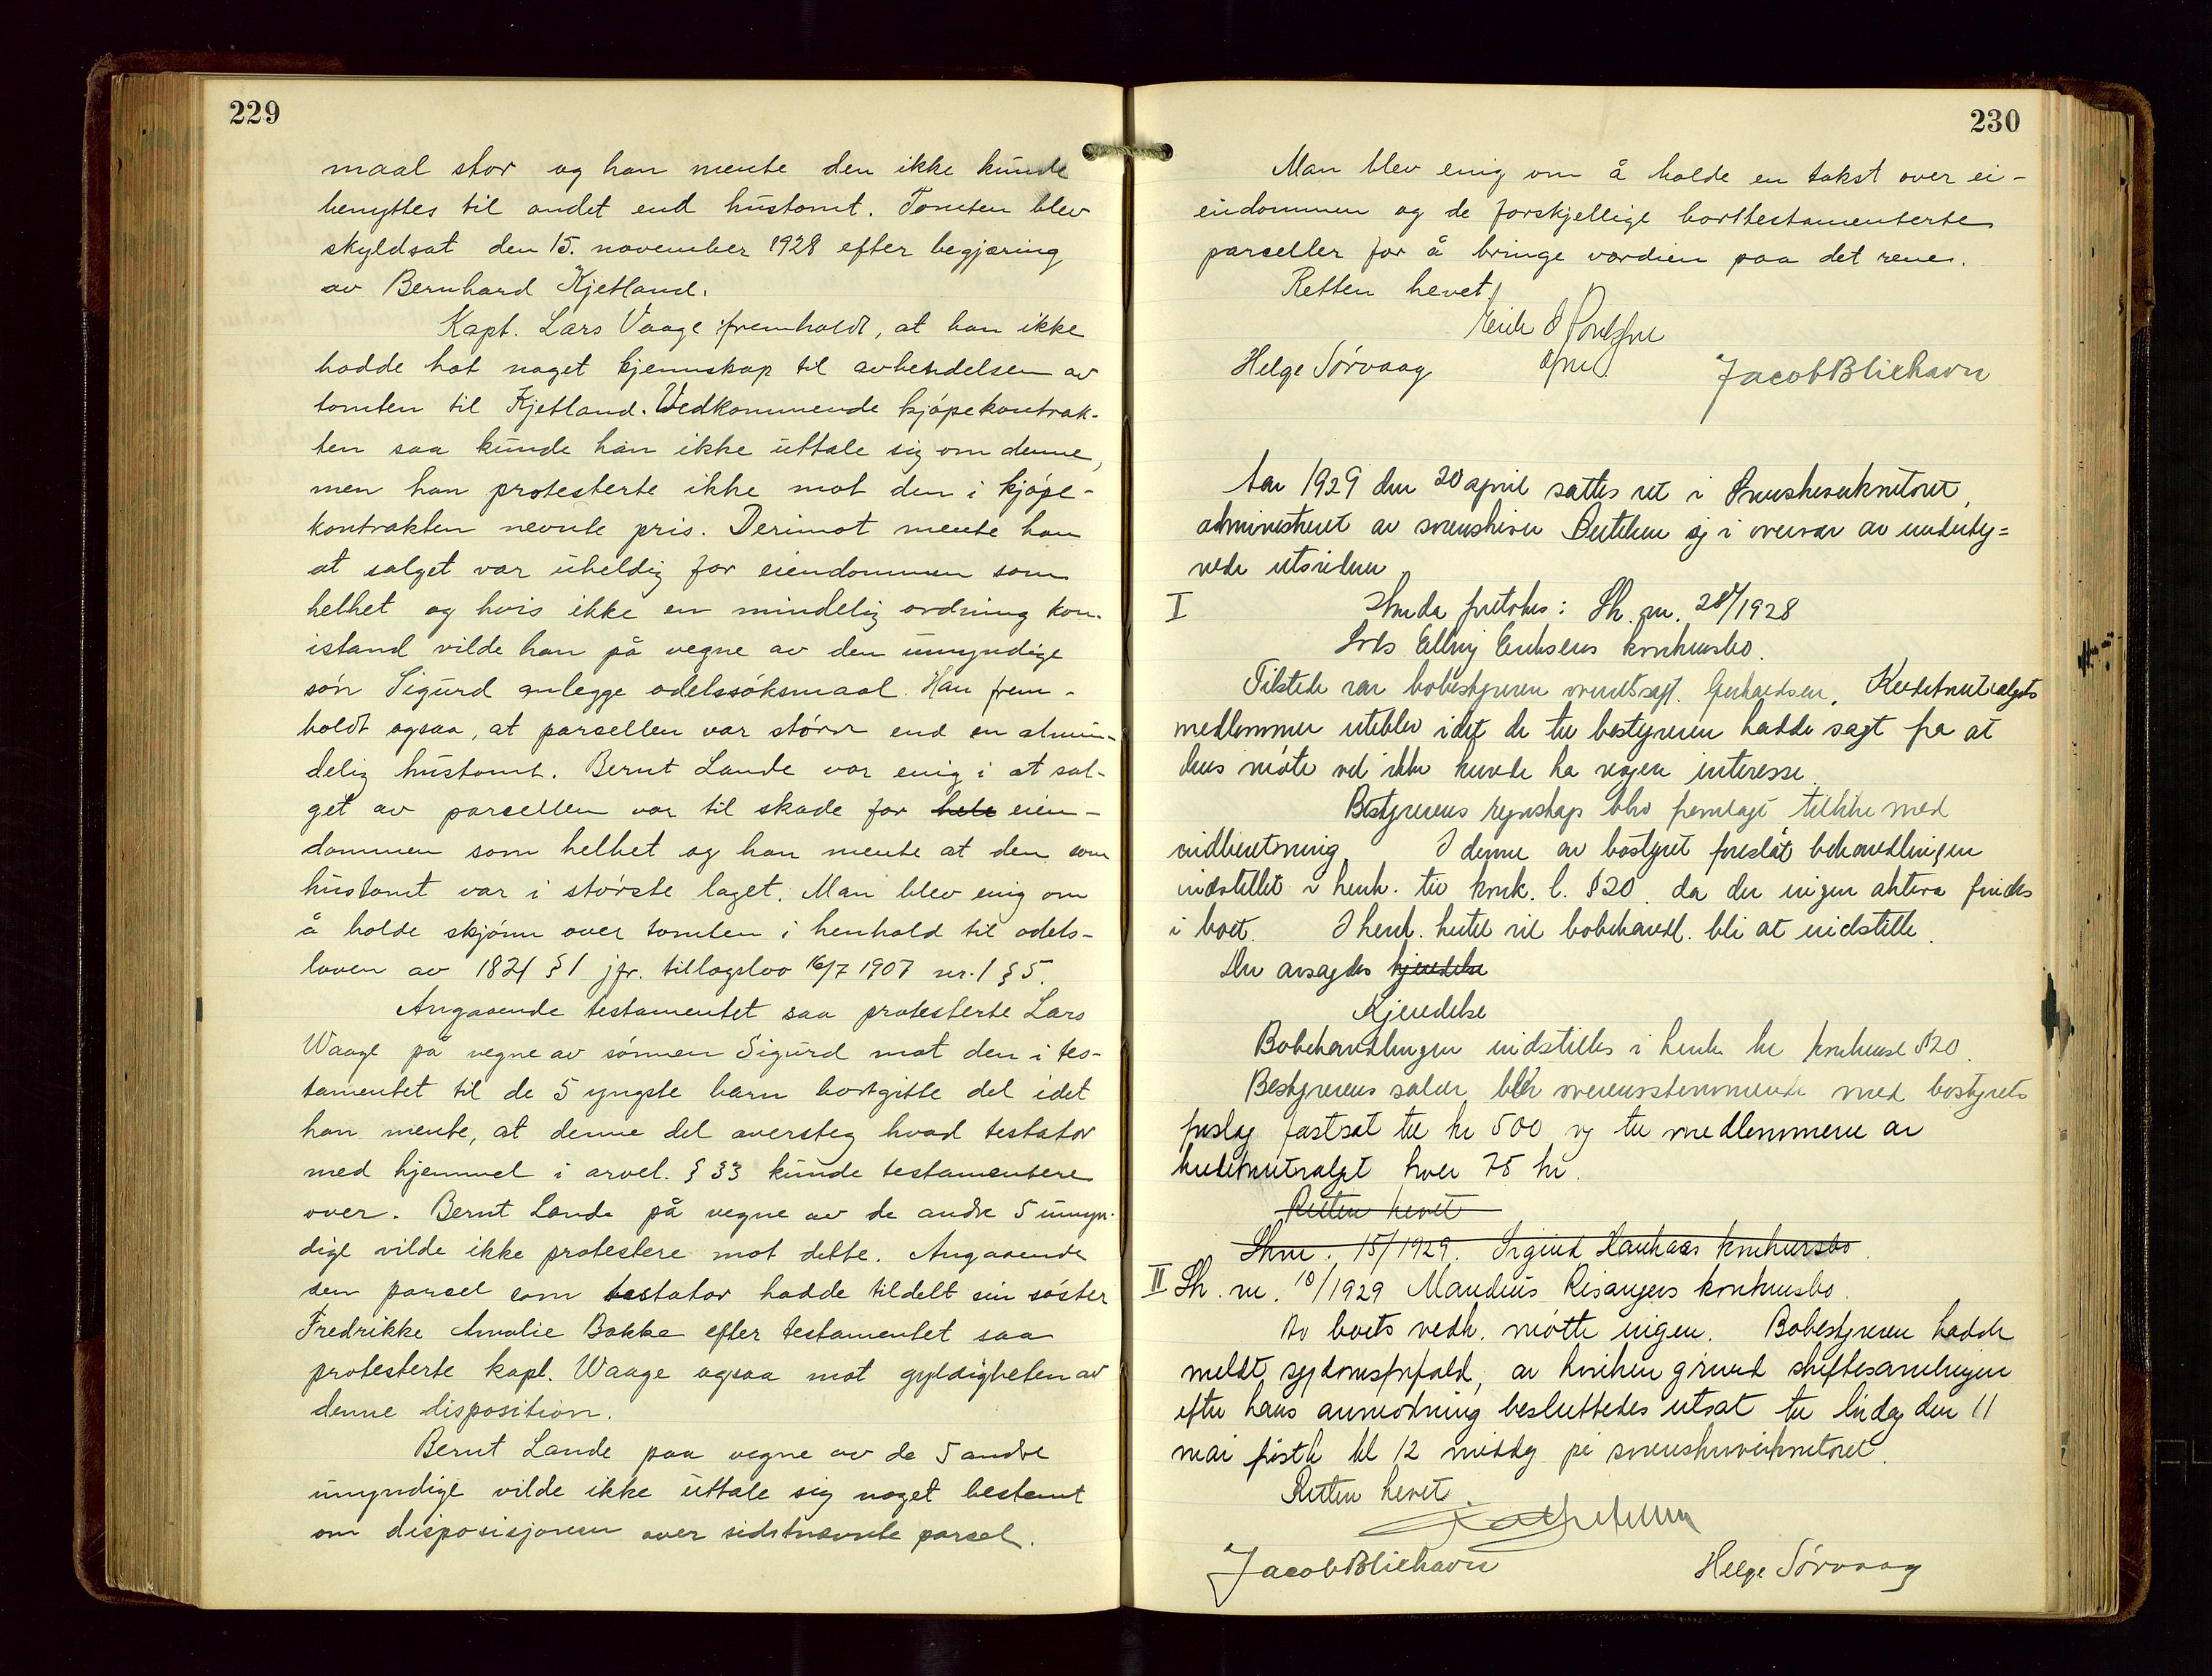 229
maal stor og han mente den ikke kunde
benyttes til andet end hustomt. Tomten blev
skyldsat den 15. november 1928 efter begjæring
av Bernhard Kjetland.
Kapt. Lars Vaage fremholdt, at han ikke
hadde hat noget kjennskap til avhendelsen av
tomten til Kjetland. Vedkommende kjøpekontrak-
ten saa kunde han ikke uttale sig om denne,
men han protesterte ikke mot den i kjøpe-
kontrakten nevnte pris. Derimot mente han
at salget var uheldig for eiendommen som
helhet og hvis ikke en mindelig ordning kom
istand vilde han på vegne av den umyndige
søn Sigurd anlegge odelssøksmaal. Han frem-
holdt ogsaa, at parsellen var større end en almin-
delig hustomt. Bernt Lande var enig i at sal-
get av parsellen var til skade for hele eien-
dommen som helhet og han mente at den som
hustomt var i største laget. Man blev enig om
å holde skjønn over tomten i henhold til odels-
loven av 1821 § 1 jfr. tillegslov 16/7 1907 nr. 1 § 5.
Angaaende testamentet saa protesterte Lars
Waage på vegne av sønnen Sigurd mot den i tes-
tamentet til de 5 yngste barn bortgitte del idet
han mente, at denne del oversteg hvad testator
med hjemmel i arvel. § 33 kunde testamentere
over. Bernt Lande på vegne av de andre 5 umyn-
dige vilde ikke protestere mot dette. Angaaende
den parsel som testator hadde tildelt sin søster
Fredrikke Amalie Bakke efter testamentet saa
protesterte kapt. Waage ogsaa mot gyldigheten av
denne disposition.
Bernt Lande paa vegne av de 5 andre
umyndige vilde ikke uttale sig noget bestemt
om disposisjonen over sidstnævnte parsel.
230
Man blev enig om å holde en takst over ei-
eiendommen og de forskjellige borttestamenterte
parseller for å bringe værdien paa det rene.
Retten hevet.
Helge Sørvaag
Jacob Bliehavn
Aar 1929 den 20 april sattes ret i Sorenskriverkontoret,
administreret av sorenskriver og i overvær av underteg=
nede retsvidner
I
Hvorda foretokes: Sk. nr. 28/1928
Lods Elling Eriksens konkursbo.
Tilstede var bobestyreren overretssagf. Gerhardsen. Kreditorutvalgets
medlemmer uteblev idet de til bestyreren hadde sagt fra at
deres møte vel ikke kunde ha nogen interesse.
Bestyrerens regnskap blev fremlagt tillike med
indberetning. I denne av bostyret foreslåt behandlingen
indstillet i henh. til konk. l. § 20. da der ingen aktiva findes
i boet. I henh. hertil vil bobehandl. bli at indstille.
Der avsagdes kjendelse
Kjendelse
Bobehandlingen indstilles i henh. til konkursl § 20.
Bestyrerens salær blir overensstemmende med bostyrets
forslag fastsat til kr 500 og til medlemmene av
kreditorutvalget hver 75 kr.
Retten hevet
Sknr. 15/1929. Sigurd Hauhaas konkursbo.
II Sk. nr. 10/1929 Maudius Risangers konkursbo.
Av boets vedk. møtte ingen. Bobestyreren hadde
meldt sygdomsforfald, av hvilken grund skiftesamlingen
efter hans anmodning besluttedes utsat til lørdag den 11
mai førstk kl 12 middag på sorenskriverkontoret.
Retten hevet.
Jacob Bliehavn
Helge Sørvaag